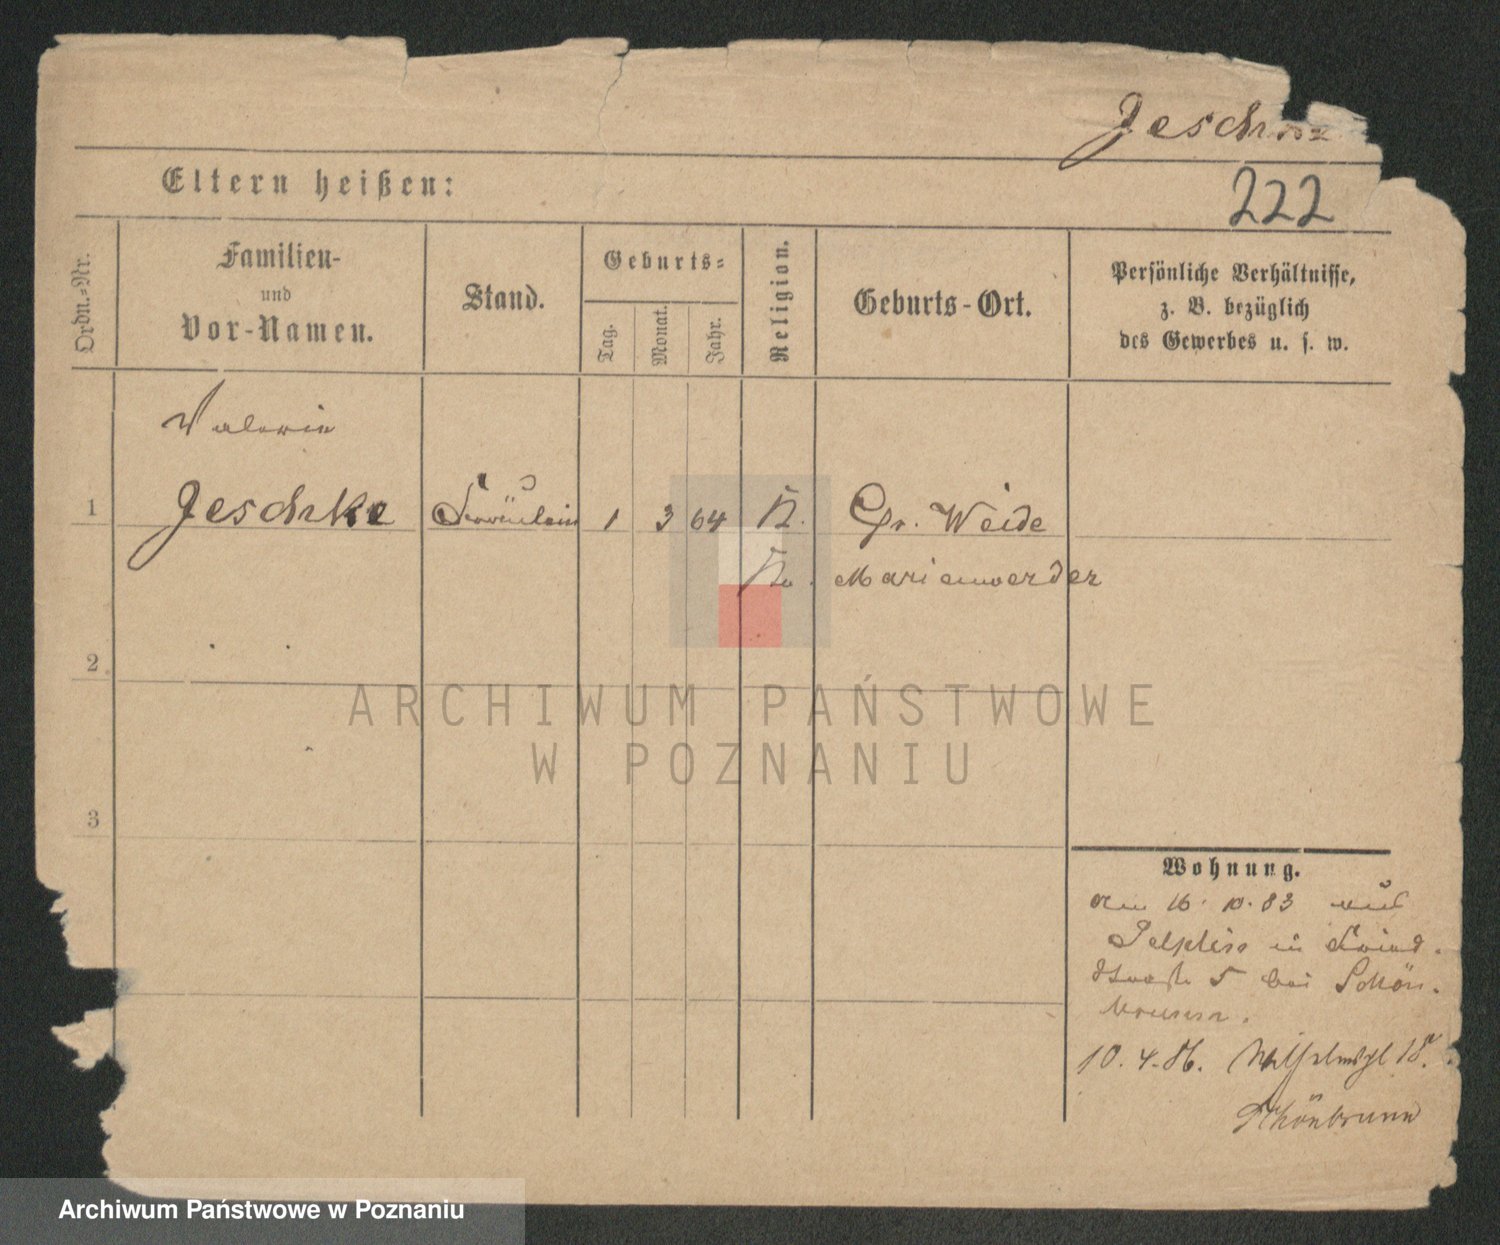 Jeschke
Eltern heißen:
222
Ordn.-Nr.
Familien-
und
Vor-Namen.
Stand.
Geburts-
Tag.
Monat.
Jahr.
Religion.
Geburts-Ort.
Persönliche Verhältnisse,
z. B. bezüglich
des Gewerbes u. s. w.
Valerie
1 Jeschke Fräulein 1 3 64 K. Gr. Weide
Kr. Marienwerder
2
3
ARCHIWUM PAŃSTWOWE
W POZNANIU
Wohnung.
am 16. 10. 83 aus
Pelplin in Fried-
straße 5 bei Schön-
brunn.
10. 4. 86. Wilhelmspl 18.
Schönbrunn
Archiwum Państwowe w Poznaniu